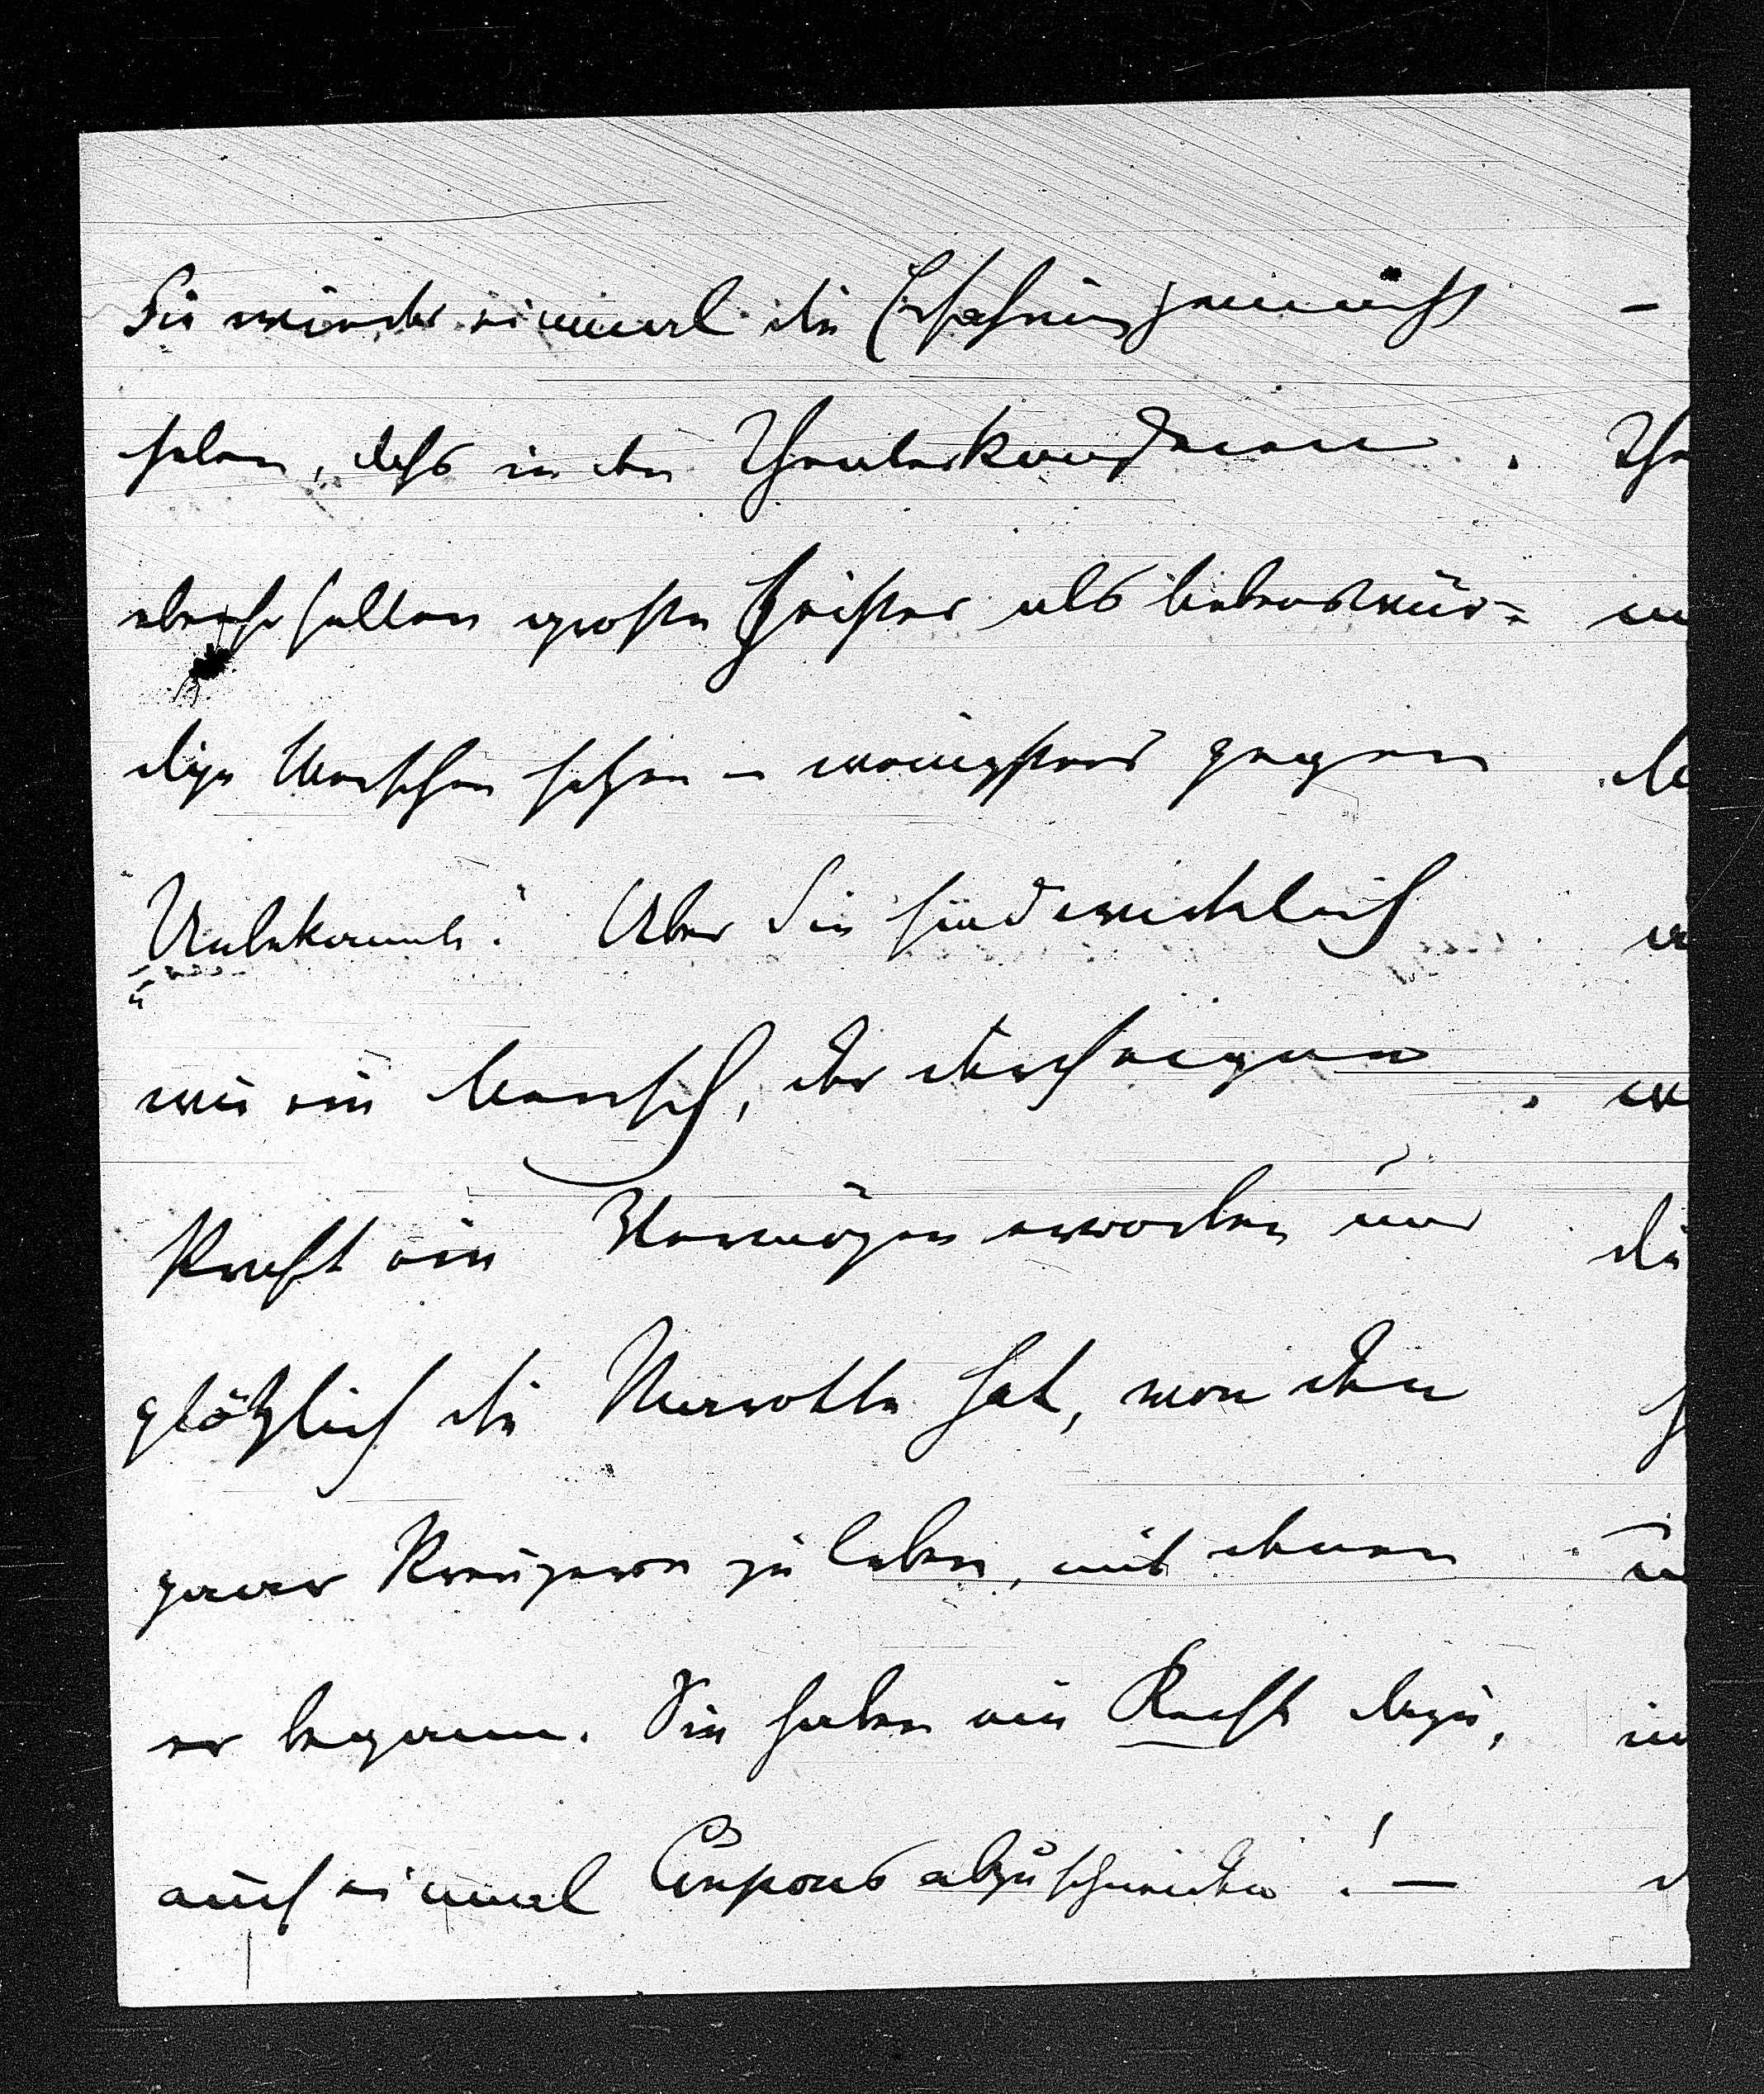 Sie würden einmal die Erfahrung gemacht
haben, daß in den Theaterkanzleien
ebenso selten große Geister als liebenswür=
dige Menschen sitzen – wenigstens gegen
"Unbekannte". Aber Sie sind wirklich
wie ein Mensch, der durch eigene
Kraft ein Vermögen erworben und
plötzlich die Marotte hat, von den
paar Kreuzern zu leben, mit denen
er begann. Sie haben ein Recht dazu,
auch einmal Coupons abzuschneiden! –